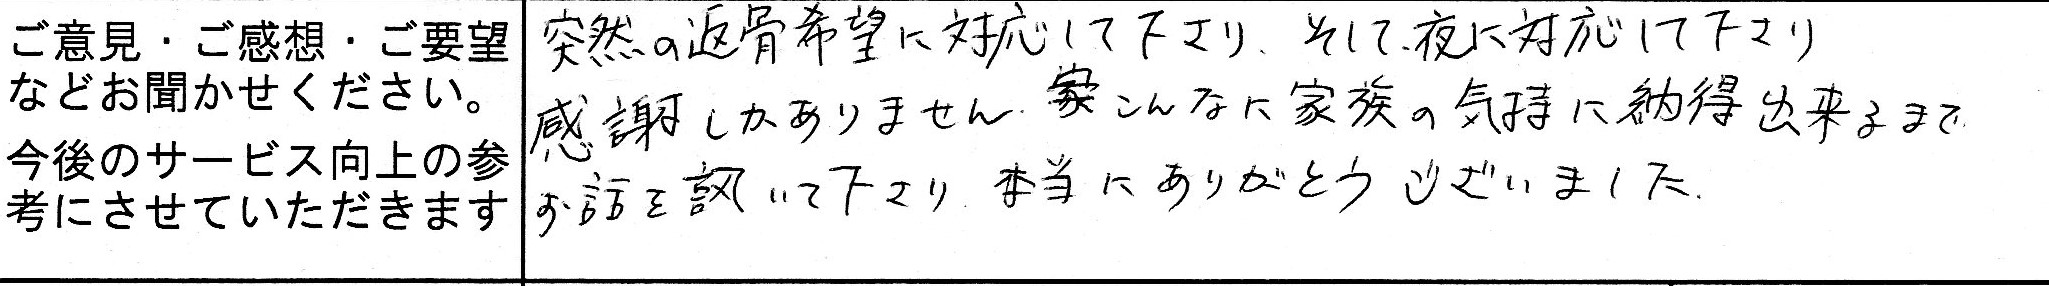 ご意見・ご感想・ご要望
などお聞かせください。
今後のサービス向上の参
考にさせていただきます
突然の返骨希望に対応して下さり、そして、夜に対応して下さり
感謝しかありません。こんなに家族の気持に納得出来るまで
お話を訊いて下さり、本当にありがとうございました。